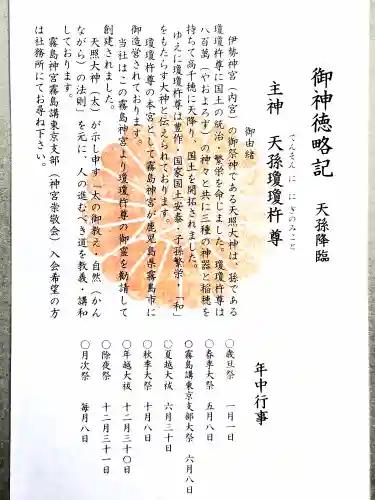 御神徳略記 天孫降臨
主神 天孫瓊瓊杵尊
てんそん に にぎのみこと
御由緒
伊勢神宮(内宮)の御祭神である天照大神は、孫である
瓊瓊杵尊に国土の統治・繁栄を命じました。瓊瓊杵尊は
八百萬(やおよろず)の神々と共に三種の神器と稲穂を
持ちて高千穂に天降り、国土を開拓されました。
ゆえに瓊瓊杵尊は豊作・国家国土安泰・子孫繁栄・「和」
をもたらす大神と伝えられております。
瓊瓊杵尊の本宮として霧島神宮が鹿児島県霧島市に
御造営されております。
当社はこの霧島神宮より瓊瓊杵尊の御霊を勧請して
創建されました。
天照大神(太)が示し申す「太の御教え・自然(かん
ながら)の法則」を元に、人の進むべき道を教義・講和
しております。
霧島神宮霧島講東京支部(神宮崇敬会)入会希望の方
は社務所にてお尋ね下さい。
年中行事
〇歳旦祭 一月一日
〇春季大祭 五月八日
〇霧島講東京支部大祭 六月八日
〇夏越大祓 六月三十日
〇秋季大祭 十月八日
〇年越大祓 十二月三十〇日
〇除夜祭 十二月三十一日
〇月次祭 毎月八日